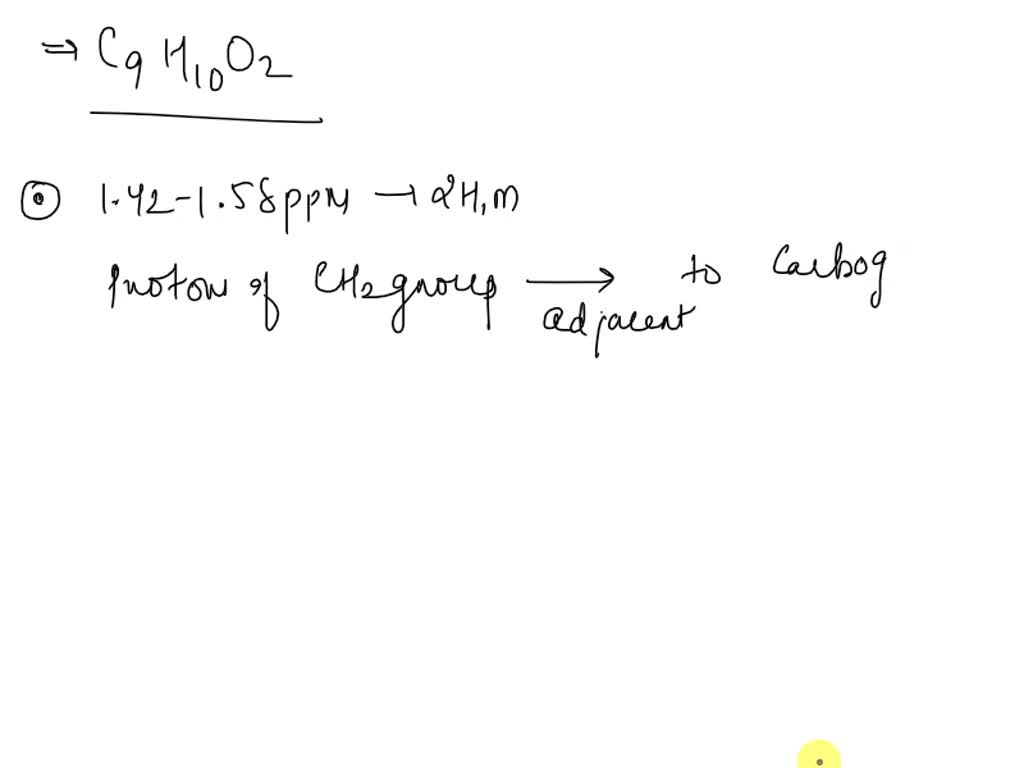 ⇒ C9H10O2
⊙ 1.42-1.58ppm → 2H,m
proton of CH2 group ⟶ to Carbog
adjacent